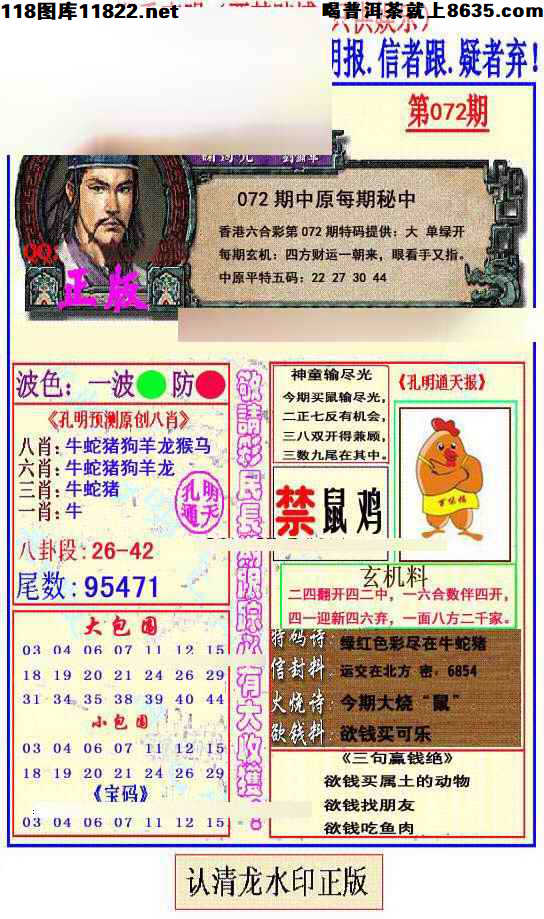 118图库11822.net
喝普洱茶就上8635.com
明报.信者跟.疑者弃!
第072期
072期中原每期秘中
香港六合彩第072期特码提供：大 单绿开
每期玄机：四方财运一朝来，眼看手又指。
中原平特五码：22 27 30 44
正版
波色：一波 防
《孔明预测原创八肖》
八肖：牛蛇猪狗羊龙猴马
六肖：牛蛇猪狗羊龙
三肖：牛蛇猪
一肖：牛
孔明
通天
八卦段：26-42
尾数：95471
大包围
03 04 06 07 11 12 15
18 19 20 21 24 26 29
31 34 35 38 39 40 44
小包围
03 04 06 07 11 12 15
18 19 20 21 24 26 29
《宝码》
03 04 06 07 11 12 15
敬請彩民長期跟踪必有大收獲
神童输尽光
今期买鼠输尽光，
二正七反有机会，
三八双开得兼顾，
三数九尾在其中。
《孔明通天报》
禁鼠鸡
玄机料
二四翻开四二中，一六合数伴四开，
四一迎新四六弃，一面八方二千家。
特码诗：绿红色彩尽在牛蛇猪
信封料：运交在北方 密，6854
火烧诗：今期大烧“鼠”
欲钱料：欲钱买可乐
《三句赢钱绝》
欲钱买属土的动物
欲钱找朋友
欲钱吃鱼肉
认清龙水印正版